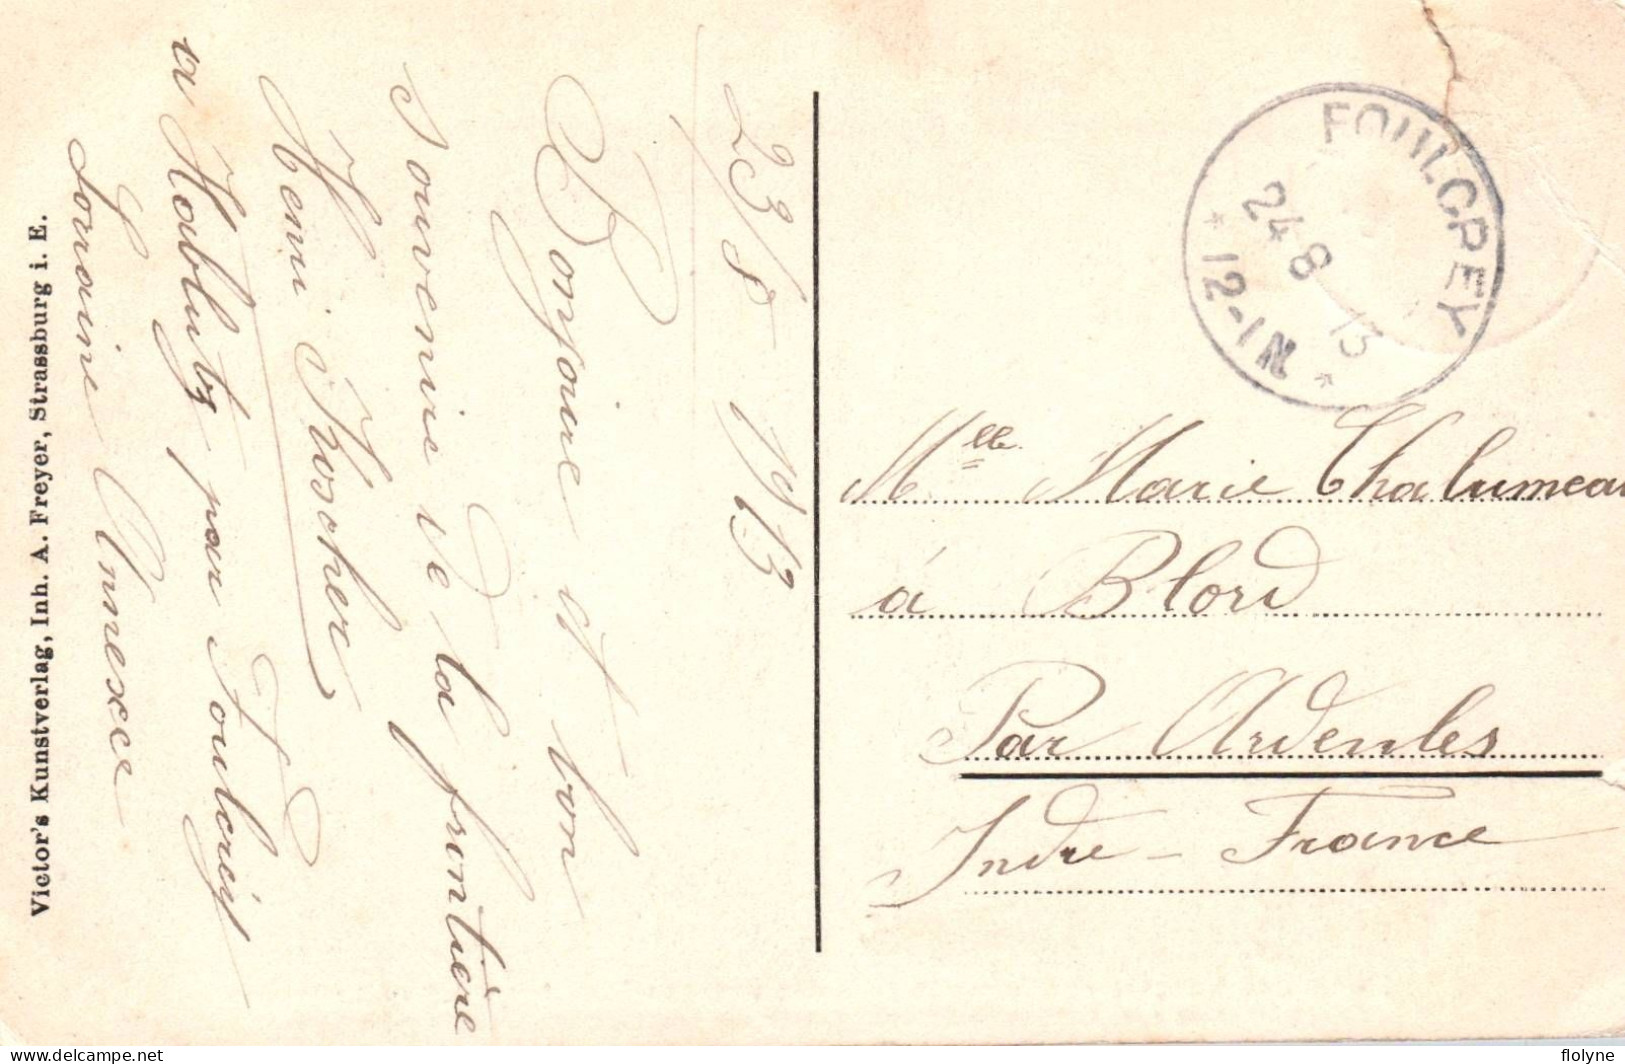 23/8 1913
Bonjoure et bon
souvenire de la frontière
Henri Koscher
a Hablutz par Foulcrey
Lorraine Annexée
Victor's Kunstverlag, Inh. A. Freyer, Strassburg i. E.
FOULCREY
24 8 13
* 12-1N *
Mlle Marie Chalumeau
à Blord
Par Ardentes
Indre - France
flolyne